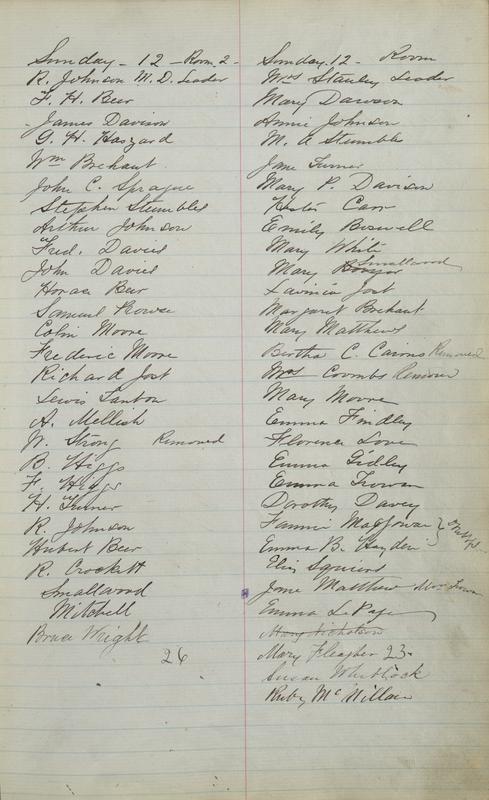 Sunday - 12 - Room 2 -
R. Johnson M.D. Leader
F. H. Beer
James Davison
G. H. Haszard
Wm Brehaut
John C. Sprague
Stephen Stumbles
Arthur Johnson
Fred. Davis
John Davis
Horace Beer
Samuel Rowe
Colin Moore
Frederic Moore
Richard Jost
Lewis Tanton
A. Mellish
W. Strong Removed
B. Higgs
F. Higgs
H. Turner
R. Johnson
Hubert Beer
R. Crockett
Smallwood
Mitchell
Bruce Wright
26
Sunday. 12 - Room
Mrs Stanley Leader
Mary Dawson
Annie Johnson
M. A Stumbles
Jane Turner
Mary P. Davison
Hester Carr
Emily Boswell
Mary White
Mary Smallwood
Lavinia Jost
Margaret Brehaut
Mary Matthews
Bertha C. Cairns Removed
Mrs Coombs Remove
Mary Moore
Emma Findley
Florence Love
Emma Gidley
Emma Trowan
Dorothy Davey
Fannie MacGowan
Emma B. Hayden
Eliz Squires
Jane Matthew
Emma LePage
Mary Nicholson
Mary Fleagher 23-
Susan Whitlock
Ruby McMillan